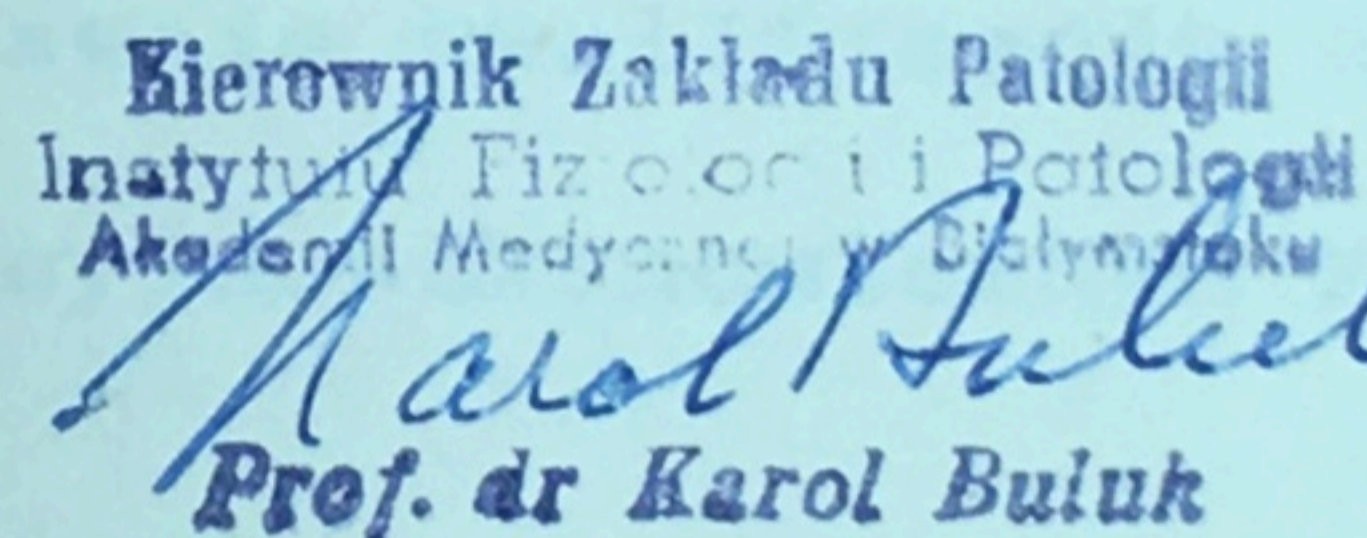 Kierownik Zakładu Patologii
Instytutu Fizjologii i Patologii
Akademii Medycznej w Białymstoku
Karol Buluk
Prof. dr Karol Buluk